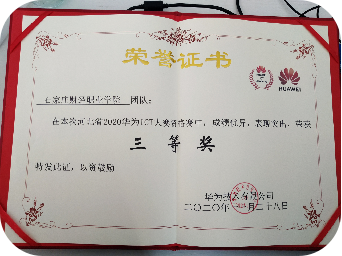 荣誉证书
HUAWEI
石家庄财经职业学院 团队:
在本次河北省2020华为ICT大赛省赛赛区,成绩优异,表现突出,荣获
三等奖
特发此证,以资鼓励
华为技术有限公司
二〇二〇年 月二十八日